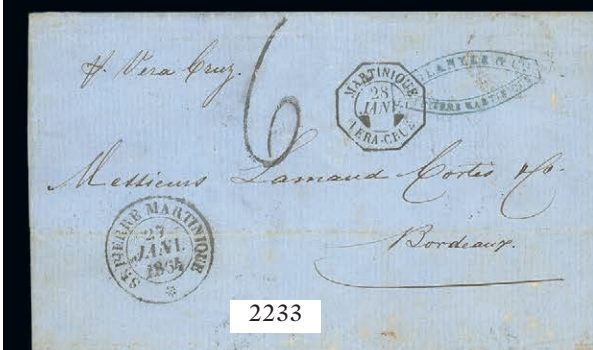 p. Vera Cruz.
6
MARTINIQUE
28
JANV.
VERA-CRUZ
& Co
ST PIERRE MARTINIQUE
Messieurs Lamaud Cortès & Co.
Bordeaux.
ST. PIERRE MARTINIQUE
27
JANV.
1864
2233